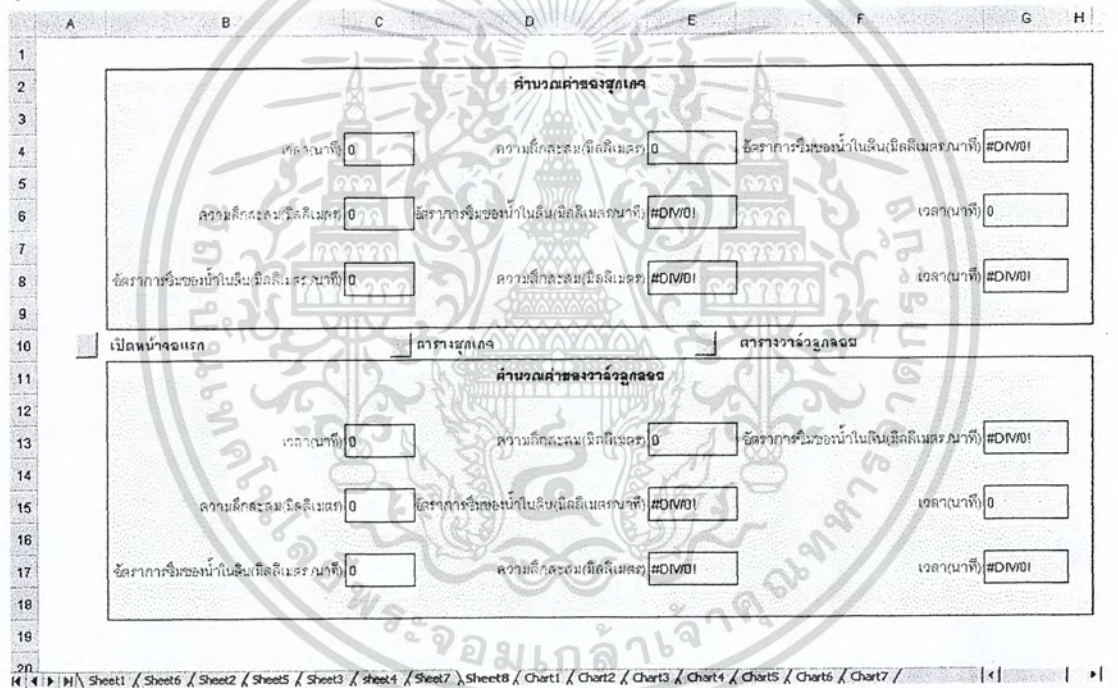 A B C D E F G H
1
2 คำนวณค่าของฮุกเกจ
3
4 เวลา(นาที) 0 ความลึกสะสม(มิลลิเมตร) 0 อัตราการซึมของน้ำในดิน(มิลลิเมตร/นาที) #DIV/0!
5
6 ความลึกสะสม(มิลลิเมตร) 0 อัตราการซึมของน้ำในดิน(มิลลิเมตร/นาที) #DIV/0! เวลา(นาที) 0
7
8 อัตราการซึมของน้ำในดิน(มิลลิเมตร/นาที) 0 ความลึกสะสม(มิลลิเมตร) #DIV/0! เวลา(นาที) #DIV/0!
9
10 เปิดหน้าจอแรก ตารางฮุกเกจ ตารางวาล์วลูกลอย
11 คำนวณค่าของวาล์วลูกลอย
12
13 เวลา(นาที) 0 ความลึกสะสม(มิลลิเมตร) 0 อัตราการซึมของน้ำในดิน(มิลลิเมตร/นาที) #DIV/0!
14
15 ความลึกสะสม(มิลลิเมตร) 0 อัตราการซึมของน้ำในดิน(มิลลิเมตร/นาที) #DIV/0! เวลา(นาที) 0
16
17 อัตราการซึมของน้ำในดิน(มิลลิเมตร/นาที) 0 ความลึกสะสม(มิลลิเมตร) #DIV/0! เวลา(นาที) #DIV/0!
18
19
20
Sheet1 / Sheet6 / Sheet2 / Sheet5 / Sheet3 / sheet4 / Sheet7 \ Sheet8 / Chart1 / Chart2 / Chart3 / Chart4 / Chart5 / Chart6 / Chart7 /
สถาบันเทคโนโลยีพระจอมเกล้าเจ้าคุณทหารลาดกระบัง